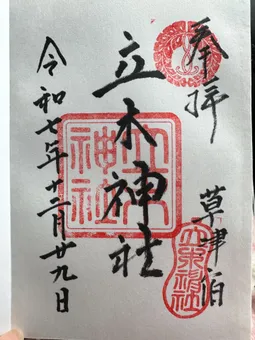 奉拝
草津
立木神社
立木神社
令和七年十二月廿九日